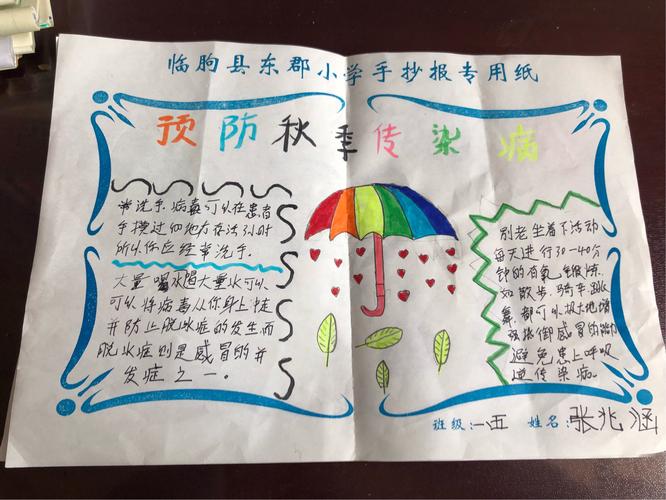 临朐县东郡小学手抄报专用纸
预防秋季传染病
常洗手.病毒可以在患者
手摸过的地方存活3小时
所以你应经常洗手.
大量喝水.大量水可以
可以将病毒从你身上冲走
并防止脱水症的发生而
脱水症则是感冒的并
发症之一.
别老坐着下活动
每天进行30-40分
钟的有氧锻炼.
如散步.骑车.跳
舞.都可以极大地增
强抵御感冒的能力
避免患上呼吸
道传染病.
班级:一五 姓名:张兆涵